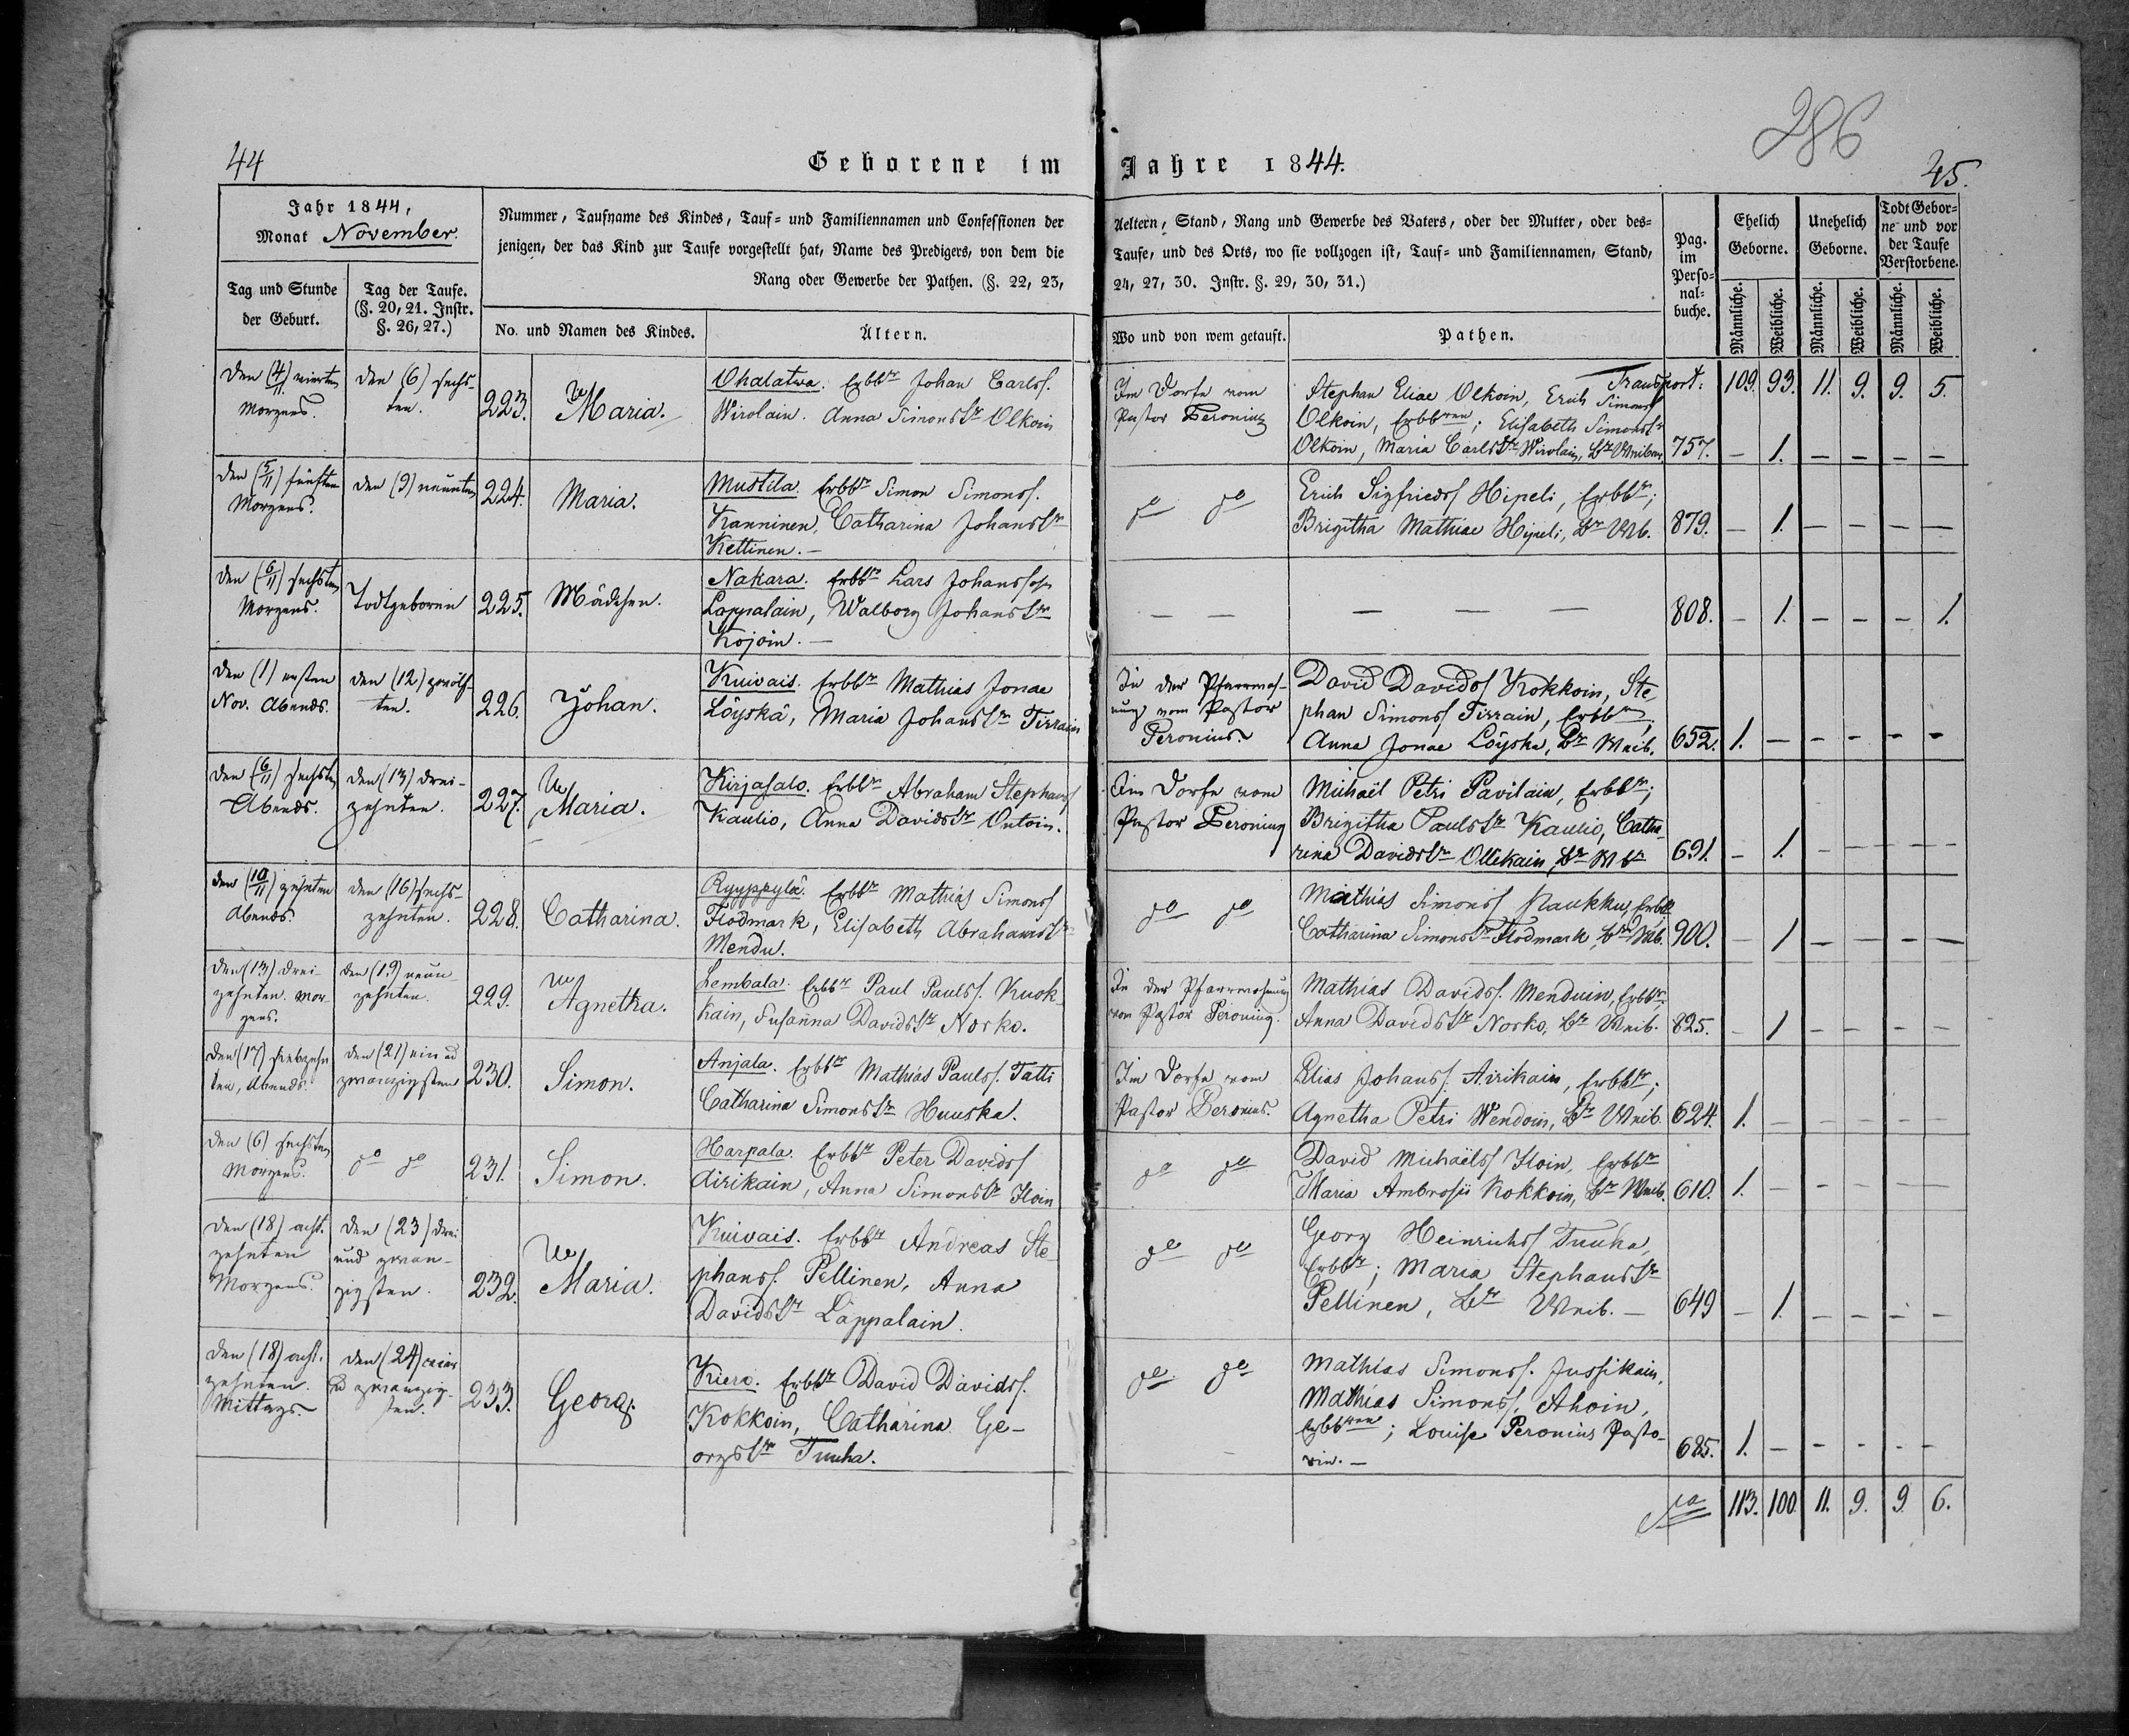 286
44
Geborene im Jahre 1844.
45.
Jahr 1844,
Monat November.
Tag und Stunde
der Geburt.
Tag der Taufe.
(§. 20, 21. Instr.
§. 26, 27.)
Nummer, Taufname des Kindes, Tauf- und Familiennamen und Confessionen der
jenigen, der das Kind zur Taufe vorgestellt hat, Name des Predigers, von dem die
Rang oder Gewerbe der Pathen. (§. 22, 23,
No. und Namen des Kindes.
Ältern.
Aeltern, Stand, Rang und Gewerbe des Vaters, oder der Mutter, oder des-
Taufe, und des Orts, wo sie vollzogen ist, Tauf- und Familiennamen, Stand,
24, 27, 30. Instr. §. 29, 30, 31.)
Wo und von wem getauft.
Pathen.
Pag.
im
Perso-
nal-
buche.
Ehelich
Geborne.
Unehelich
Geborne.
Todt Gebor-
ne und vor
der Taufe
Verstorbene.
Männliche.
Weibliche.
Männliche.
Weibliche.
Männliche.
Weibliche.
Transport: 109. 93. 11. 9. 9. 5.
Den (4/11) vierten
Morgens.
den (6) sechs-
ten.
223.
Maria.
Ohalatwa. Erbbr Johan Carlss.
Wirolain. Anna Simonstr Olkoin
Im Dorfe vom
Pastor Peronius
Stephan Eliae Olkoin, Erich Simonss
Olkoin, Erbbren; Elisabeth Simonstr
Olkoin, Maria Carlstr Wirolain, Br Weiber.
757. – 1. – – – –
Den (5/11) fünften
Morgens.
den (9) neunten
224.
Maria.
Mustila. Erbbr Simon Simonss.
Kanninen, Catharina Johanstr
Kettinen. –
do do
Erich Sigfriedss Hipeli, Erbbr;
Brigitha Mathiae Hipeli, Br Wb.
879. – 1. – – – –
Den (6/11) sechsten
Morgens.
Todtgeboren
225.
Mädchen.
Nakara. Erbbr Lars Johanssohn
Lappalain, Walborg Johanstr
Kojoin. –
– – – – –
808. – 1. – – – 1.
Den (1) ersten
Nov. Abends.
den (12) zwölf-
ten.
226.
Johan.
Kuivais. Erbbr Mathias Jonae
Löyskä, Maria Johanstr Tirrain
In der Pfarrwoh-
nung vom Pastor
Peronius.
David Davidss Kokkoin, Ste
phan Simonss Tirrain, Erbbren;
Anna Jonae Löyskä, Br Weib.
652. 1. – – – – –
Den (6/11) sechsten
Abends.
den (13) drei-
zehnten.
227.
Maria.
Kirjasalo. Erbbr Abraham Stephanss
Kaulio, Anna Davidstr Ontoin.
Im Dorfe vom
Pastor Peronius
Michaël Petri Pavilain, Erbbr;
Brigitha Paulstr Kaulio, Catha
rina Davidstr Ollikain, Br Wbr
691. – 1. – – – –
Den (10/11) zehnten
Abends.
den (16) sechs-
zehnten.
228.
Catharina.
Ryyppylä. Erbbr Mathias Simonss
Flodmark, Elisabeth Abrahamstr
Mendu.
do do
Mathias Simonss Naukku, Erbbr
Catharina Simonstr Flodmark, Br Wb.
900. – 1 – – – –
Den (13) drei-
zehnten. Mor-
gens.
den (19) neun
zehnten.
229.
Agnetha.
Lembala. Erbbr Paul Paulss. Kuok-
kain, Susanna Davidstr Norko.
In der Pfarrwohnung
vom Pastor Peronius.
Mathias Davidss. Menduin, Erbbr;
Anna Davidstr Norko, Br Weib.
825. – 1 – – – –
Den (17) siebzehn
ten, Abends.
den (21) ein ud
zwanzigsten
230.
Simon.
Anjala. Erbbr Mathias Paulss. Tatti
Catharina Simonstr Huuska.
Im Dorfe vom
Pastor Peronius.
Elias Johanss. Airikain, Erbbr;
Agnetha Petri Wendoin, Br Weib.
624. 1. – – – – –
Den (6) sechsten
Morgens.
do do
231.
Simon.
Harpala. Erbbr Peter Davidss
Airikain, Anna Simonstr Iloin
do do
David Michaëlss Iloin, Erbbr
Maria Ambrosii Kokkoin, Br Weib.
610. 1. – – – – –
Den (18) acht-
zehnten
Morgens.
den (23) drei
und zwan-
zigsten.
232.
Maria.
Kuivais. Erbbr Andreas Ste
phanss. Pellinen, Anna
Davidstr Lappalain.
do do
Georg Heinrichss Tuuha,
Erbbr; Maria Stephanstr
Pellinen, Br Weib. –
649 – 1. – – – –
Den (18) acht-
zehnten.
Mittags.
den (24) vier
ud zwanzig-
sten.
233.
Georg.
Kiero. Erbbr David Davidss.
Kokkoin, Catharina Ge-
orgstr Tuuha.
do do
Mathias Simonss. Jussikain,
Mathias Simonss. Ahoin,
Erbbren; Louise Peronius Pasto-
rin. –
685. 1. – – – – –
113. 100. 11. 9. 9. 6.